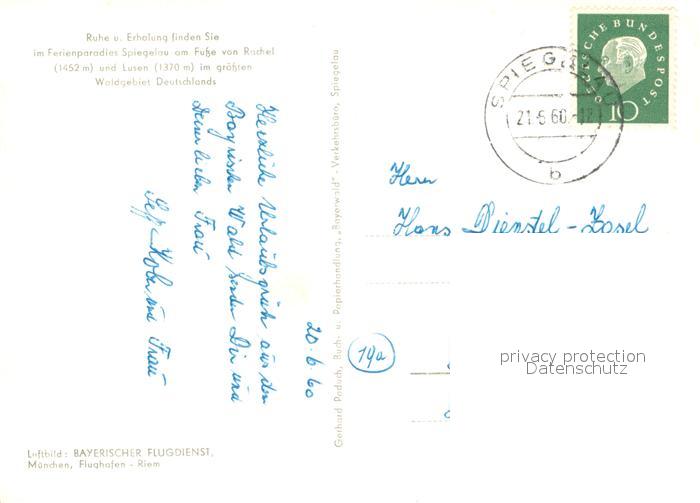 Ruhe u. Erholung finden Sie
im Ferienparadies Spiegelau am Fuße von Rachel
(1452 m) und Lusen (1370 m) im größten
Waldgebiet Deutschlands
20.6.60
Herzliche Urlaubsgrüße aus dem
Bayrischen Wald senden Dir und
Deiner lieben Frau
Sepp und Frau
Luftbild: BAYERISCHER FLUGDIENST,
München, Flughafen - Riem
Gerhard Paduch, Buch- u. Papierhandlung, „Bayerwald" - Verkehrsbüro, Spiegelau
DEUTSCHE BUNDESPOST
10
SPIEGELAU
21.6.60.-12
b
Herrn
Hans Dienstel - Zasel
14a
privacy protection
Datenschutz